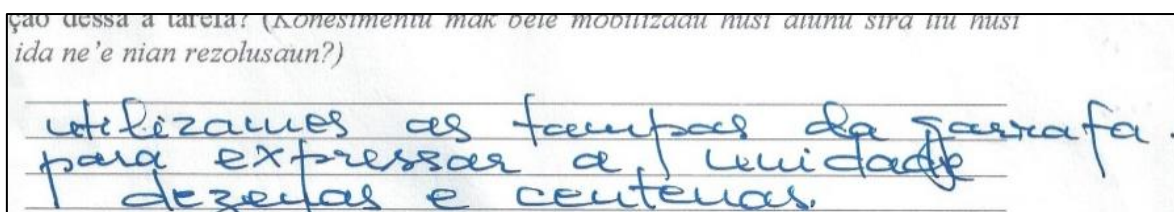 ção dessa a tarefa? (Konesimentu mak bele mobilizadu husi alunu sira liu husi
ida ne'e nian rezolusaun?)
utilizames as tampas da garrafa.
para expressar a unidade
dezenas e centenas.